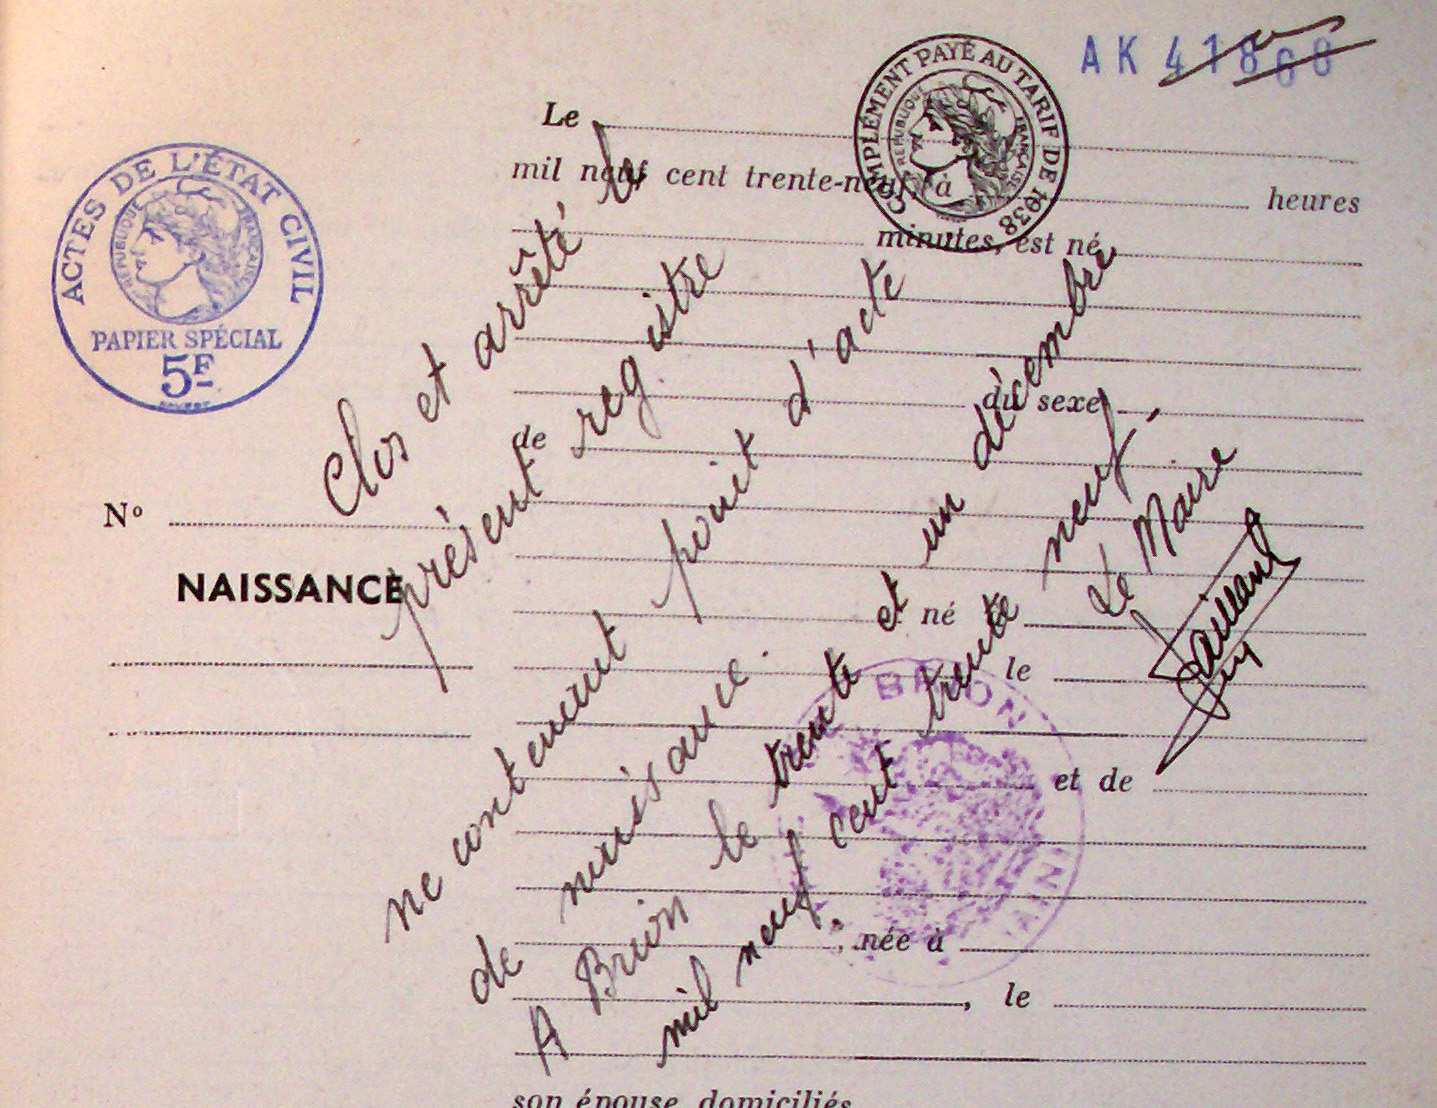 AK 41868
COMPLÉMENT PAYÉ AU TARIF DE 1938
RÉPUBLIQUE FRANÇAISE
ACTES DE L'ÉTAT CIVIL
RÉPUBLIQUE FRANÇAISE
PAPIER SPÉCIAL
5F
Le
mil neuf cent trente-neuf, à heures
minutes, est né
du sexe
de
né
le
et de
, née à
, le
son épouse domiciliés
Nº
NAISSANCE
Clos et arrêté le
présent registre
ne contenant point d'acte
de naissance.
A Brion le trente et un décembre
mil neuf cent trente neuf.
Le Maire
BRION
AIN